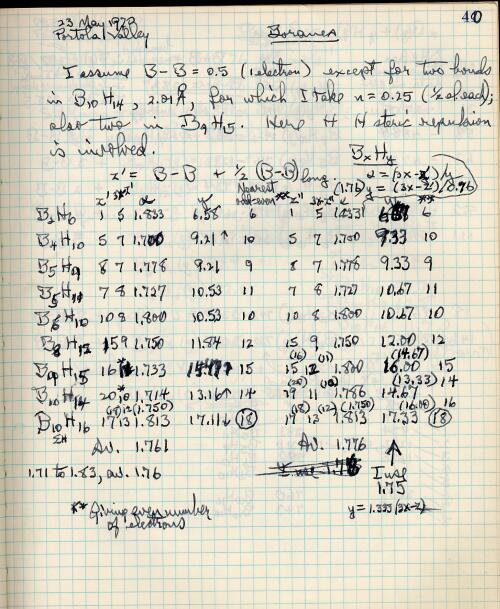 40
23 May 1972
Portola Valley
Boranes
I assume B-B = 0.5 (1 electron) except for two bonds
in B10H14, 2.01Å, for which I take n = 0.25 (½ of each);
also two in B9H15. Here H H steric repulsion
is involved.
BxHy
z' = B-B + ½ (B-B) long.
α = (3x-z')/y
(1.76) y = (3x-z')/0.76
Nearest
odd-even**
z' 3x-z' α y z'' 3x-z'' α y **
B2H6 1 5 1.833 6.58 6 1 5 6
B4H10 5 7 1.700 9.21↑ 10 5 7 1.700 9.33 10
B5H9 8 7 1.778 9.21 9 8 7 1.778 9.33 9
B5H11 7 8 1.727 10.53 11 7 8 1.727 10.67 11
B6H10 10 8 1.800 10.53 10 10 8 1.800 10.67 10
B8H12 15 9 1.750 11.84 12 15 9 1.750 12.00 12
(16) (11) (14.67)
B9H15 16* 1.733 15 15 12 1.800 16.00 15
(20) (10) (13.33)
B10H14 20* 10 1.714 13.16↑ 14 19 11 1.786 14.67 14
(18) 12 (1.750) (18) (12) (1.750) (16.00) 16
B10H16 17 13 1.813 17.11↓ (18) 17 13 1.813 17.33 (18)
Av. 1.761 Av. 1.776 ↑
1.71 to 1.83, av. 1.76 I use
1.75
** Giving even number
of electrons
y = 1.333 (3x-z)